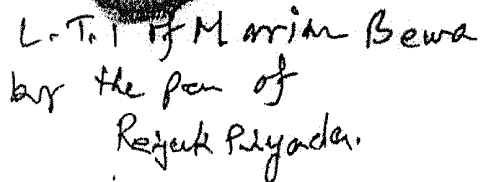 L.T.I of Marian Bewa
by the pen of
Rejuk Piyada.